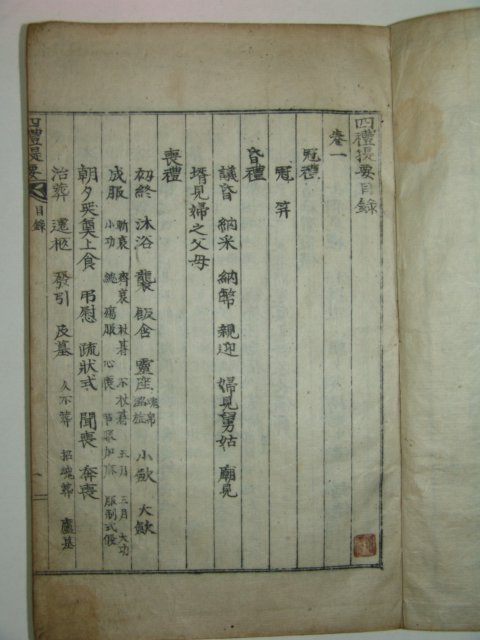 四禮提要目錄
卷一
冠禮
冠 笄
昏禮
議昏 納采 納幣 親迎 婦見舅姑 廟見
壻見婦之父母
喪禮
初終 沐浴 襲 飯含 靈座 魂帛 銘旌 小斂 大斂
成服 斬衰 齊衰 杖朞 不杖朞 五月 三月 大功 小功 緦 殤服 心喪 服制式假
朝夕哭奠上食 弔慰 疏狀式 聞喪 奔喪
治葬 遷柩 發引 及墓 久不葬 招魂葬 廬墓
四禮提要
目錄
一